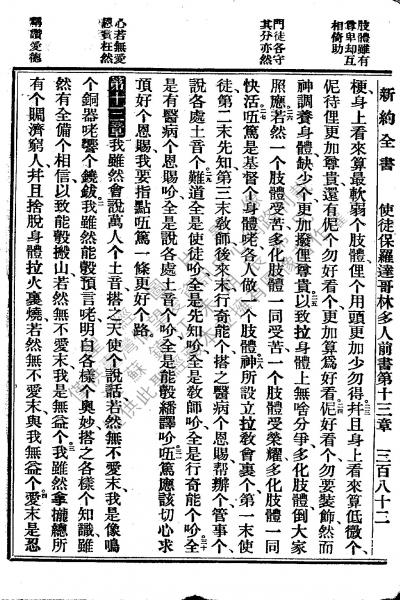 新約全書　使徒保羅達哥林多人前書第十三章　三百八十二
肢體雖有
尊卑却互
相倚助
門徒各守
其分亦然
心若無愛
恩賜枉然
稱讚愛德
梗身上看來算最軟弱个肢體俚个用頭更加少勿得幷且身上看來算低微个
伲待俚更加尊貴還有伲个勿好看个更加算爲好看伲好看个勿要裝飾然而
神調養身體缺少个更加撥俚尊貴以致拉身體上無啥分爭多化肢體倒大家
照應若然一个肢體受苦多化肢體一同受苦一个肢體受榮耀多化肢體一同
快活伍篤是基督个身體咾各人做一个肢體神所設立拉敎會裏个第一末使
徒第二末先知第三末敎師後來末行奇能个搭之醫病个恩賜帮辦个管事个
說各處土音个難道全是使徒吤全是先知吤全是敎師吤全是行奇能个吤全
是有醫病个恩賜吤全是說各處土音个吤全是能彀繙譯吤伍篤應該切心求
頂好个恩賜我要指點伍篤一條更好个路
第十三章我雖然會說萬人个土音搭之天使个說話若然無不愛末我是像鳴
个銅器咾響个鐃鈸我雖然能彀預言咾明白各樣个奧妙搭之各樣个知識雖
然有全備个相信以致能彀搬山若然無不愛末我是無益个我雖然拿攏總所
有个賙濟窮人幷且捨脫身體拉火裏燒若然無不愛末與我無益个愛末是忍